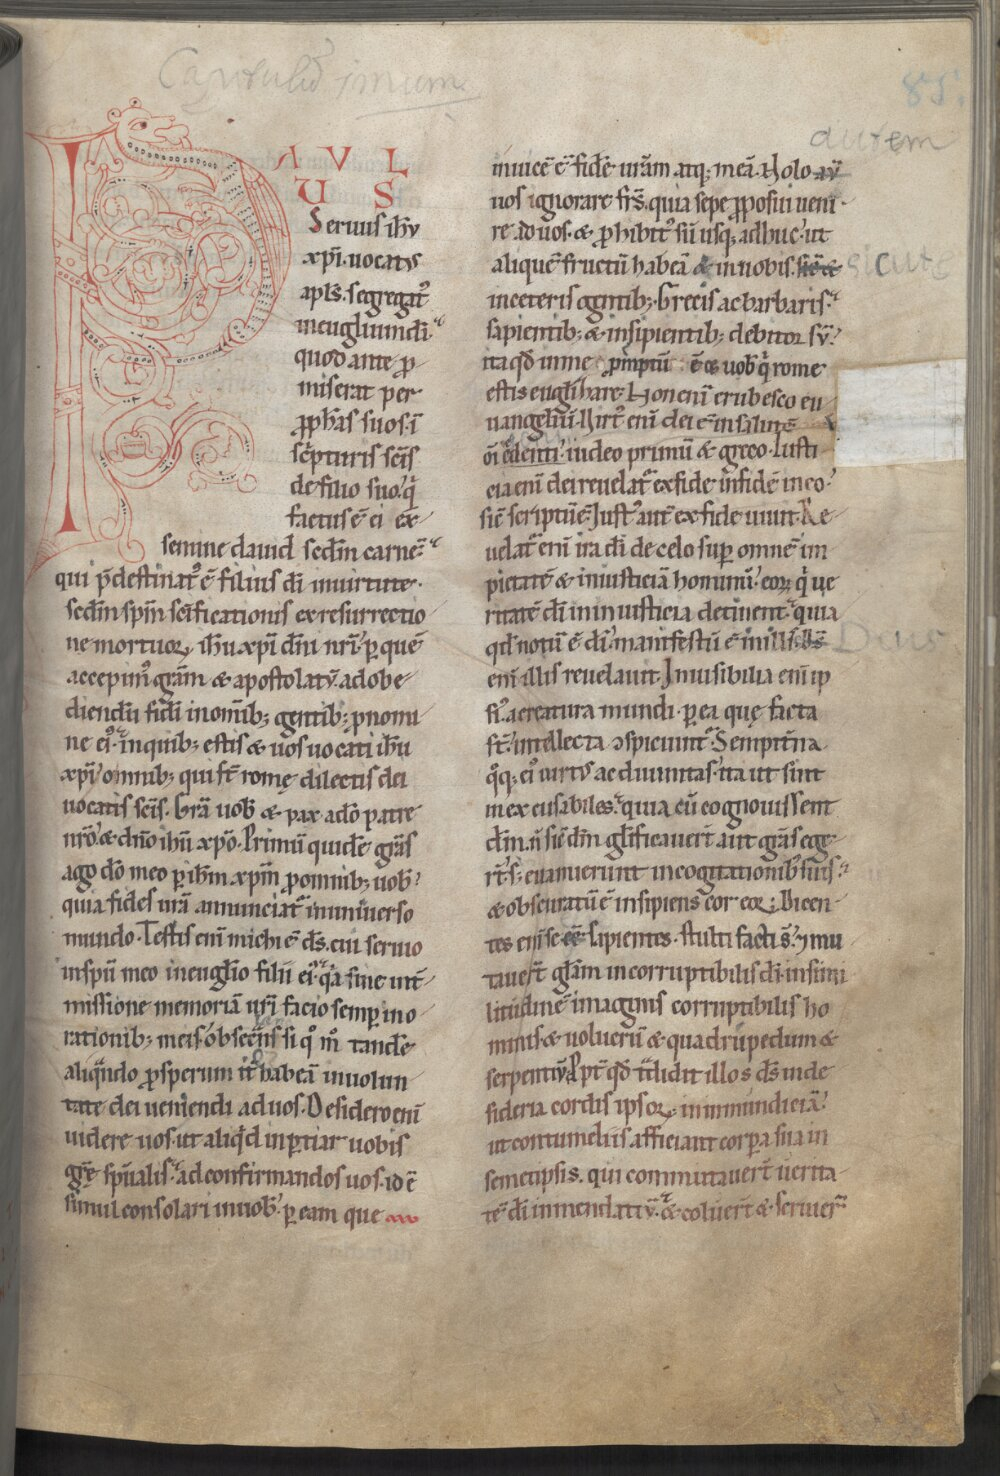 Capitulū primum
85.
PAVL
US
Seruus ihv
xp̄i. uocatꝰ
apl̄s. segregatꝰ
in eugl̄ium di.
quod ante ꝓ
miserat per
ꝓphas suos. ī
sc̄pturis sc̄is
de filio suo. q̄
factus ē ei ex
semine dauid sedm̄ carnē.
qui p̄destinatꝰ ē filius dī inuirtute.
sedm̄ sp̄m sc̄ificationis ex resurrectio
ne mortuoꝝ ihu xp̄i dn̄i nr̄i. ꝑ quē
accepimꝰ grām & apostolatū. ad obe
diendū fidei in om̄ib; gentib; ꝓ nomi
ne eiꝰ. in quib; estis & uos uocati ihu
xp̄i. omnib; qui st̄ romę dilectis dei
uocatis sc̄is. Grā uob̄ & pax a dō patre
nr̄o. & dn̄o ihū xp̄o. Primū quidē grās
ago dō meo ꝑ ihm̄ xp̄m ꝓ omnib; uob̄.
quia fides urā annunciat̄ in uniuerso
mundo. Testis enī michi ē ds̄. cui seruio
in spū meo in eugl̄io filii eiꝰ. qa sine int̄
missione memoriā ur̄i facio semꝑ in o
rationib; meis. obsecn̄s si qͦ mͦ tandē
aliqn̄do ꝓsperum it̄ habeā in uolun
tate dei ueniendi ad uos. Desidero enī
uidere uos. ut aliqd inꝑtiar uobis
grē sp̄ualis. ad confirmandos uos. id ē
simul consolari in uob̄. ꝑ eam que
autem
inuicē ē fidē urām atq; meā. Nolo
uos ignorare fr̄s. quia sepe ꝓposui ueni
re ad uos. & ꝓhibitꝰ sū usq; adhuc. ut
aliquē fructū habeā & in uobis. sicut &
sicut &
in ceteris gentib;. Grecis ac barbaris.
sapientib; & insipientib; debitor sū.
ita qd̄ in me promptū ē & uob̄ q̄ rome
estis eugl̄izare. Non enī erubesco eu
uangeliū. Uirtꝰ enī dei ē in salutē
om̄i credenti. iudeo primū & greco. Iusti
cia enī dei reuelat̄ ex fide in fidē in eo.
sic̄ scriptū ē. Iustꝰ aut̄ ex fide uiuit. Re
uelat̄ enī ira dī de celo suꝑ omnē im
pietatē & iniusticiā hominū. eoꝝ q̄ ue
ritatē dī in iniusticia detinent. quia
qd̄ notū ē dī. manifestū ē in illis. ds̄
Deus
enī illis reuelauit. Inuisibilia enī ip
siꝰ. a creatura mundi. ꝑ ea quę facta
st̄. intellecta ɔspiciunt̄. Sempit̄na
qͦq; eiꝰ uirtꝰ ac diuinitas. ita ut sint
inexcusabiles. quia cū cognouissent
dm̄. n̄ sic̄ dm̄ glificauer̄t aut grās ege
rt̄. s; euanuerunt in cogitationib; suis.
& obscuratū ē insipiens cor eoꝝ. Dicen
tes enī se eē sapientes. stulti facti st̄. ⁊ mu
tauer̄t glam incorruptibilis dī. in simi
litudinē imaginis corruptibilis ho
minis. & uolucrū & quadrupedum &
serpentiū. Pꝓt qd̄ t̄didit illos ds̄ in de
sideria cordis ipsoꝝ in inmundiciā.
ut contumeliis afficiant corꝑa sua in
semetipsis. qui commutauer̄t uerita
tē dī in mendatiū. & coluer̄t & seruier̄